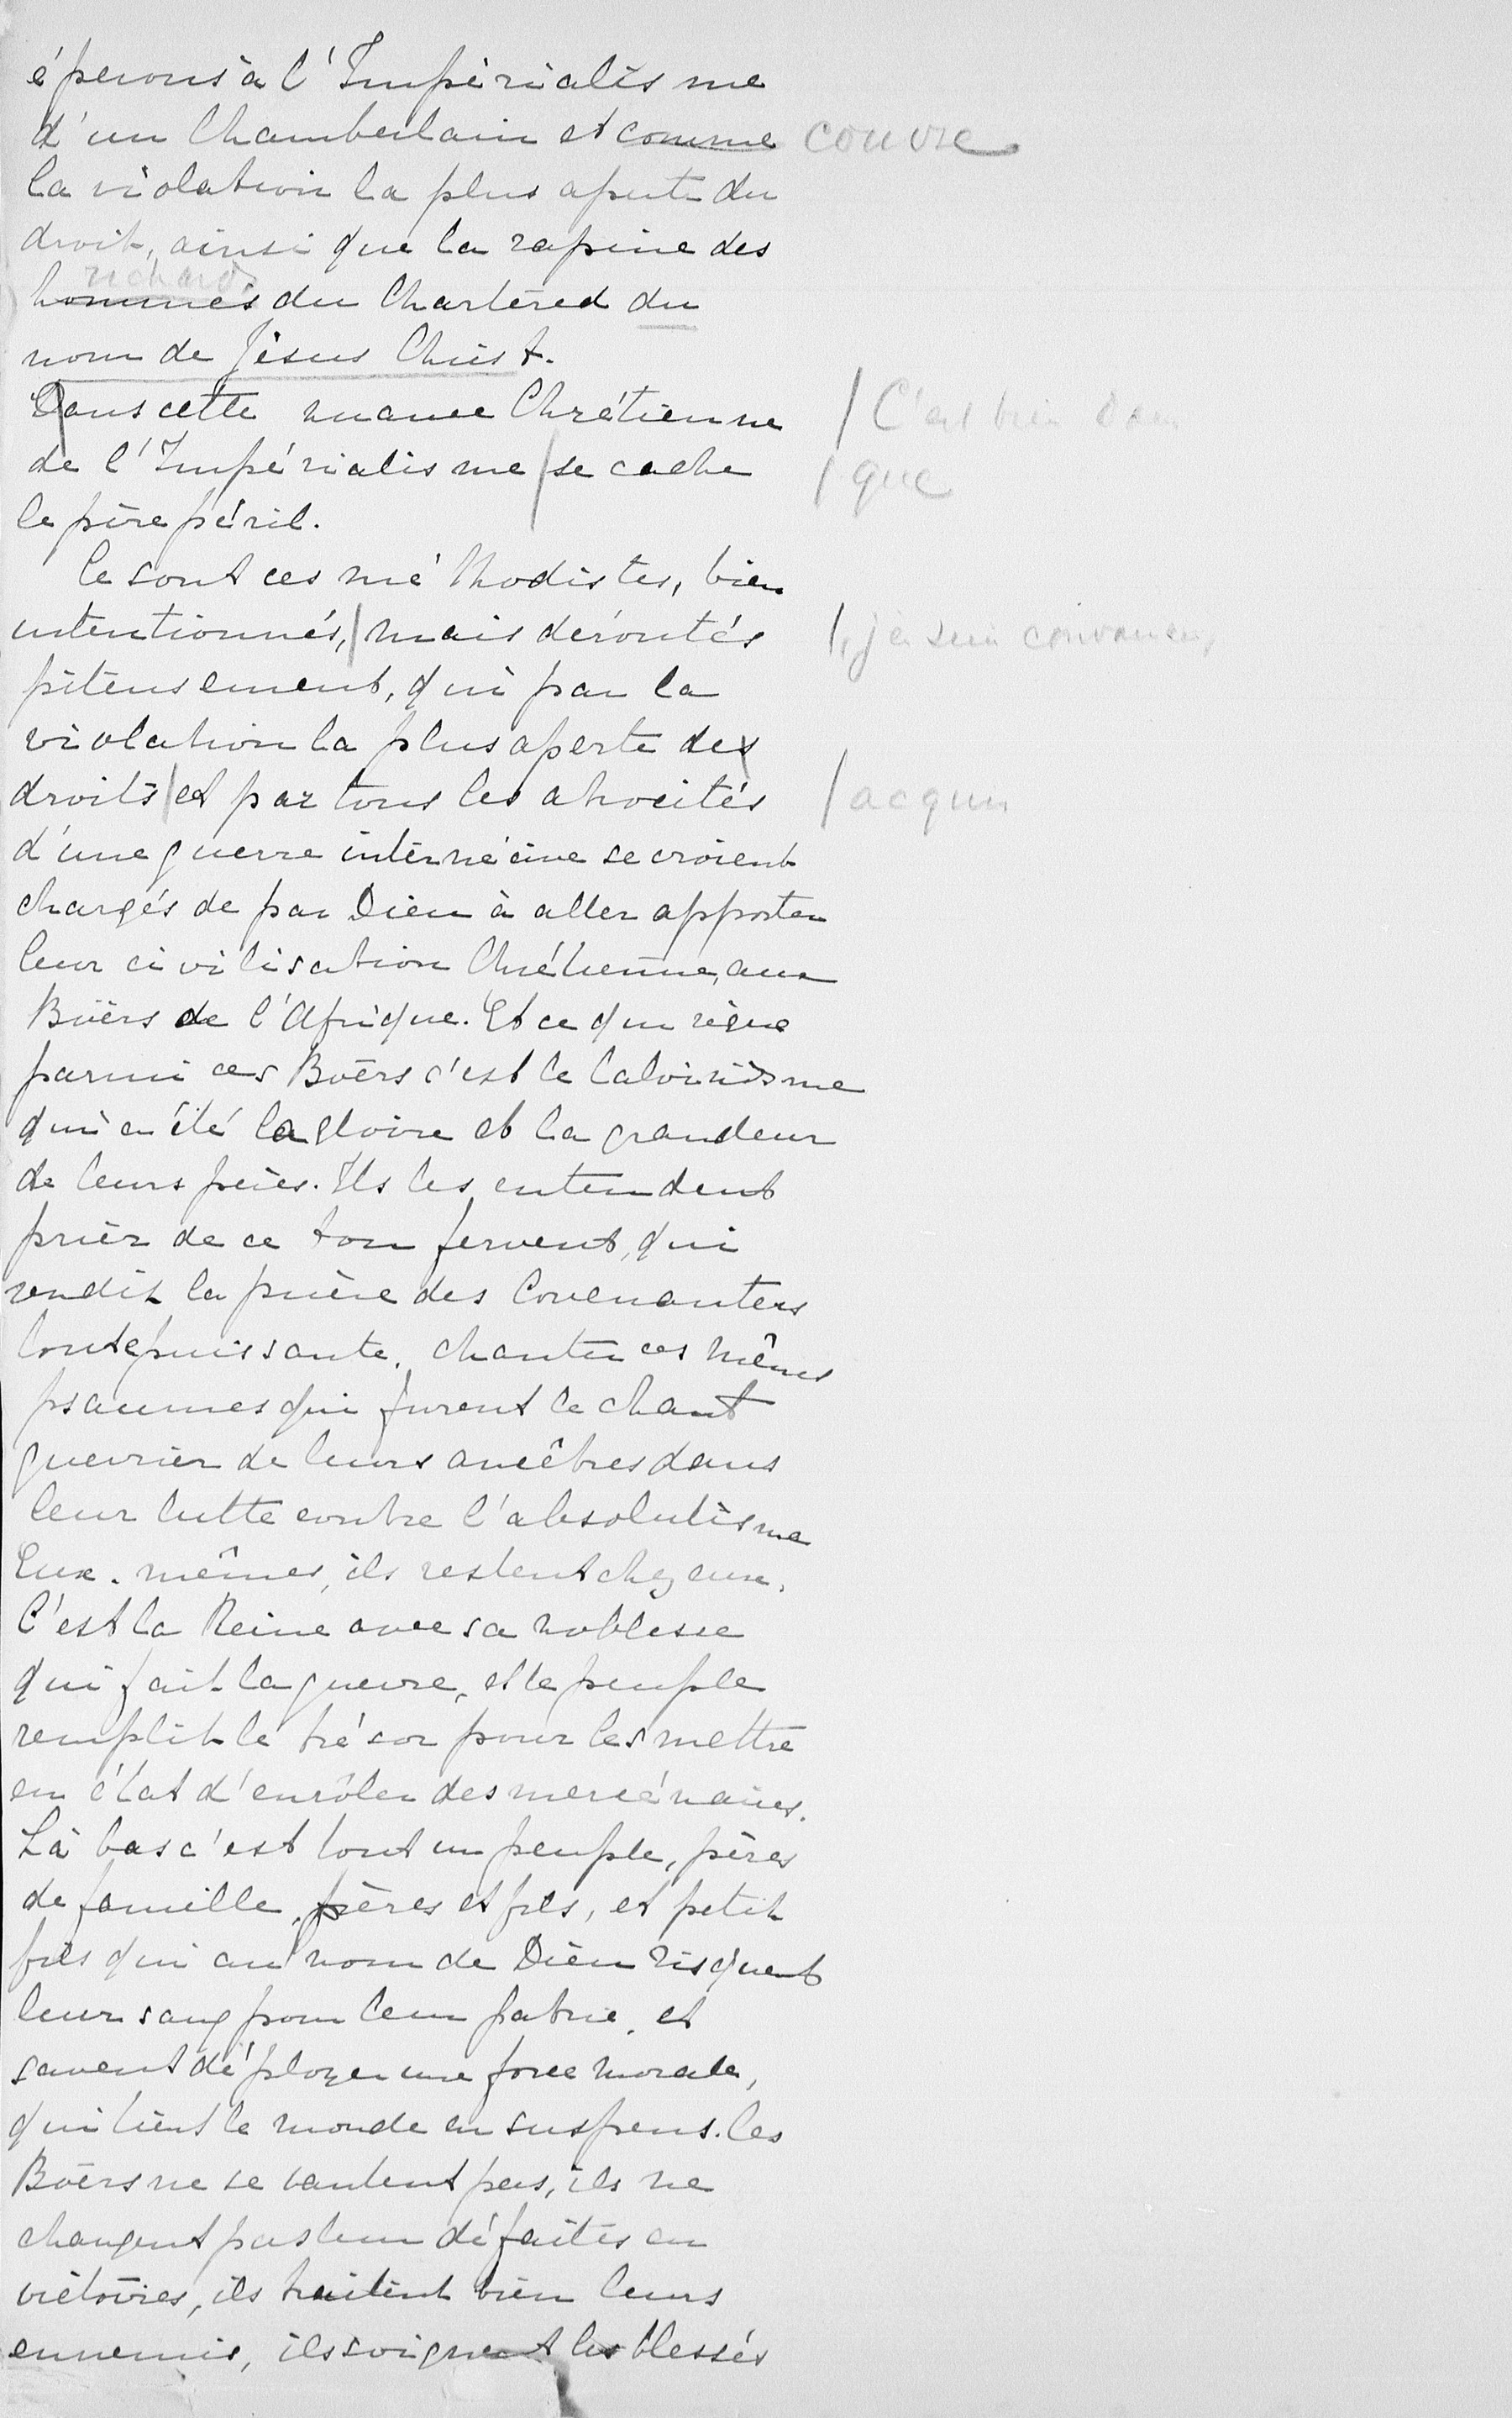 éperons à l'Impérialisme
d'un Chamberlain et comme couvre
la violation la plus aperte du
droit, ainsi que la rapine des
richards
hommes du Chartered du
nom de Jésus Christ.
Dans cette nuance Chrétienne / C'est bien dans
de l'Impérialisme / se cache / que
le pire péril.
Ce sont ces méthodistes, bien
intentionnés, / mais déroutés /, j'en suis convaincu,
piteusement, qui par la
violation la plus aperte des
droits / et par tous les atrocités / acquis
d'une guerre internécine se croient
chargés de par Dieu à aller apporter
leur civilisation Chrétienne, aux
Boërs de l'Afrique. Et ce qui règne
parmi ces Boërs c'est le Calvinisme
qui a été la gloire et la grandeur
de leurs pères. Ils les entendent
prier de ce ton fervent, qui
rendit la prière des Covenanters
toutepuissante, chanter ces mêmes
psaumes qui furent le chant
guerrier de leurs ancêtres dans
leur lutte contre l'absolutisme
Eux-mêmes, ils restent chez eux.
C'est la Reine avec sa noblesse
qui fait la guerre, et le peuple
remplit le trésor pour les mettre
en état d'enrôler des mercénaires.
Là bas c'est tout un peuple, pères
de famille, frères et fils, et petit
fils qui au nom de Dieu risquent
leur sang pour leur patrie, et
savent déployer une force morale,
qui tient le monde en suspens. Les
Boërs ne se vantent pas, ils ne
changent pas leur défaites en
victoires, ils traitent bien leurs
ennemis, ils soignent les blessés